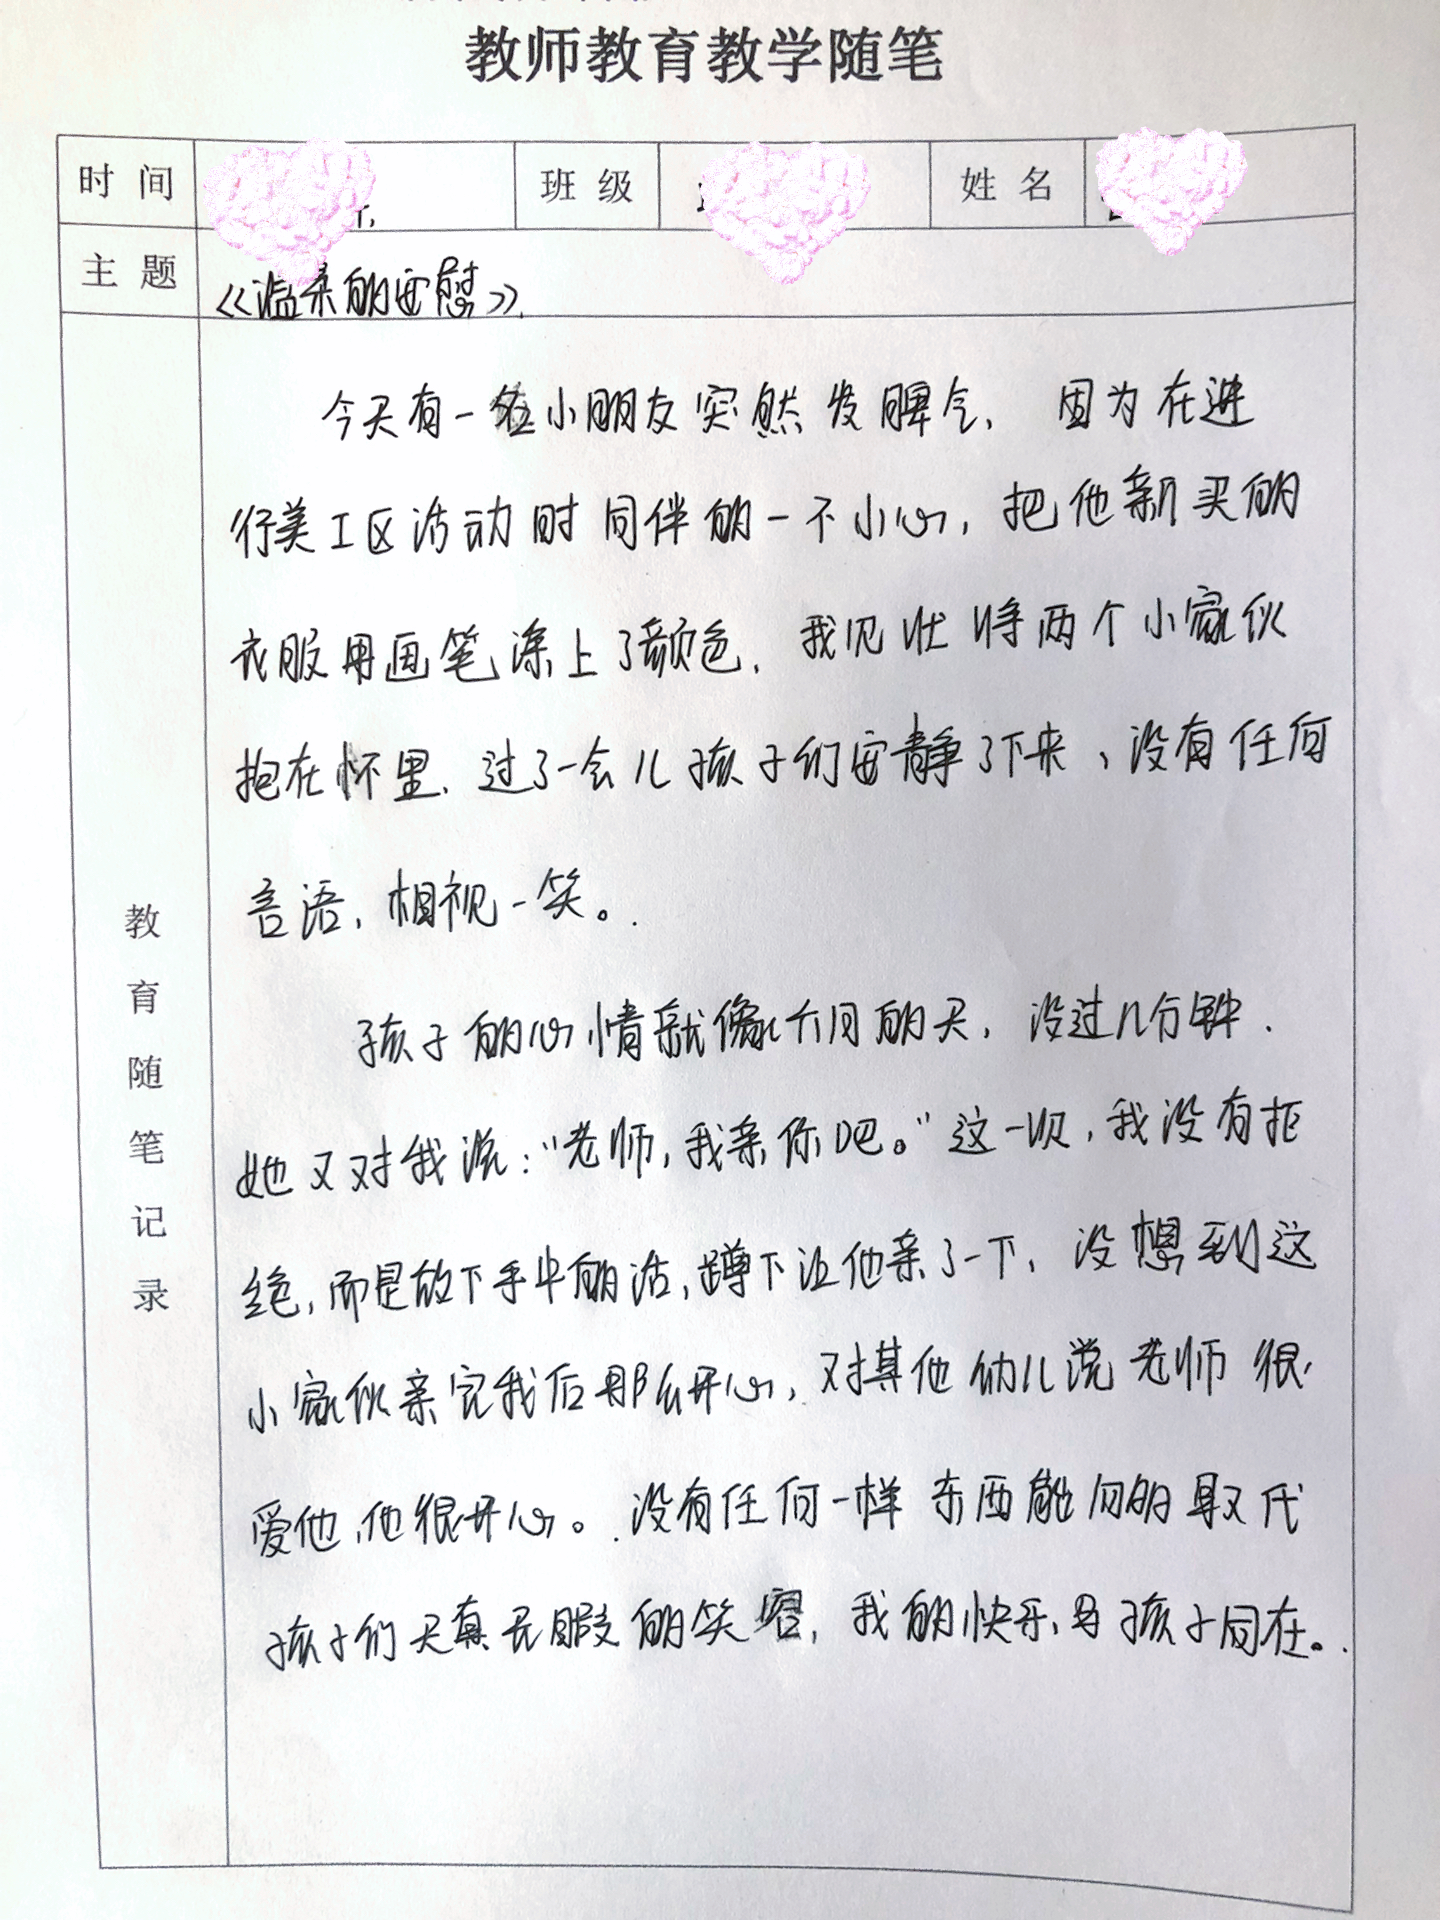 教师教育教学随笔
时间 班级 姓名
主题 《温柔的安慰》
教育随笔记录
今天有一位小朋友突然发脾气，因为在进
行美工区活动时同伴的一不小心，把他新买的
衣服用画笔涂上了颜色，我见状将两个小家伙
抱在怀里，过了一会儿孩子们安静了下来、没有任何
言语，相视一笑。
孩子的心情就像六月的天，没过几分钟，
她又对我说：“老师，我亲你吧。”这一次，我没有拒
绝，而是放下手中的活，蹲下让他亲了一下，没想到这
小家伙亲完我后那么开心，对其他幼儿说老师很
爱他，他很开心。没有任何一样东西能够的取代
孩子们天真无暇的笑容，我的快乐，与孩子同在。